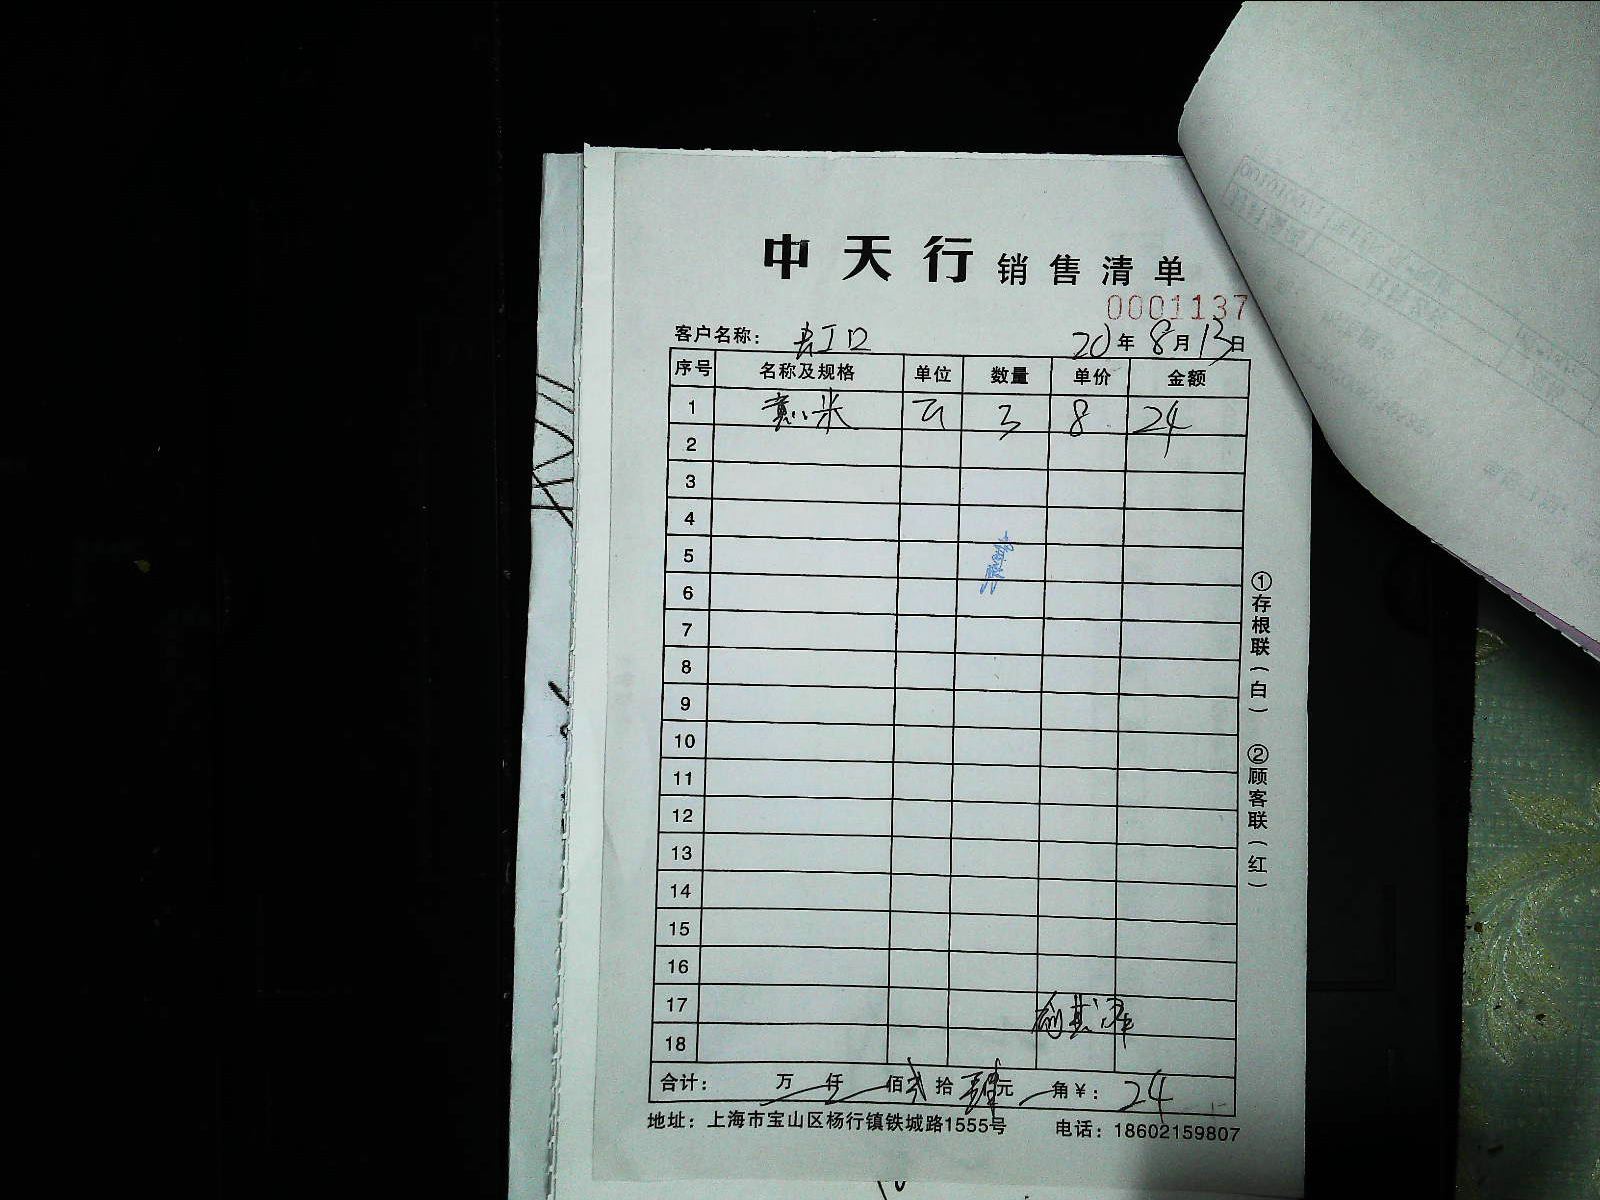 中天行 销售清单
0001137
客户名称： 虹口 20年8月13日
序号 名称及规格 单位 数量 单价 金额
1 米 3 8 24
2
3
4
5
6
7
8
9
10
11
12
13
14
15
16
17
18
合计： 万 仟 佰 贰 拾 肆 元 角 ￥： 24
地址：上海市宝山区杨行镇铁城路1555号 电话：18602159807
①存根联（白） ②顾客联（红）